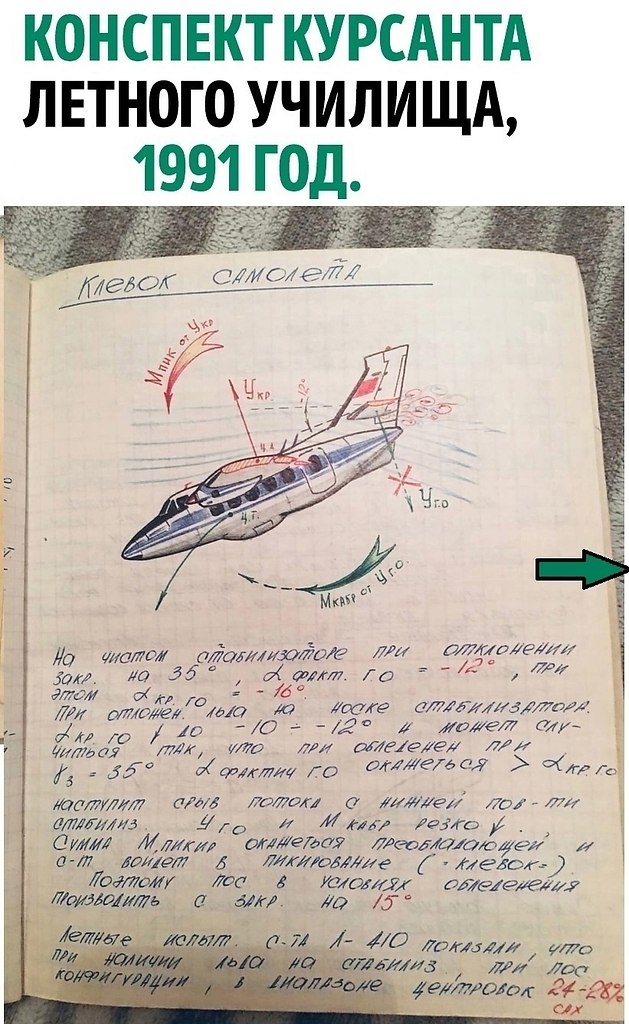 КОНСПЕКТ КУРСАНТА
ЛЕТНОГО УЧИЛИЩА,
1991 ГОД.
КЛЕВОК САМОЛЕТА
Мпик от Укр
Укр.
-12°
ц.д.
ц.т.
Уг.о
Мкабр от Уг.о.
На чистом стабилизаторе при отклонении
закр. на 35°, α факт. г.о = -12°, при
этом α кр. го = -16°.
При отложен. льда на носке стабилизатора.
α кр. го ↓ до -10 ÷ -12° и может слу-
читься так, что при обледенен при
γз = 35° α фактич го окажеться > α кр. го
наступит срыв потока с нижней пов-ти
стабилиз Уго и М кабр резко ↓.
Сумма М.пикир окажеться преобладающей и
с-т войдет в пикирование (=клевок=).
Поэтому пос в условиях обледенения
производить с закр. на 15°
Летные испыт. с-та Л-410 показали, что
при наличии льда на стабилиз, при пос
конфигурации, в диапазоне центровок 24-28%
сах